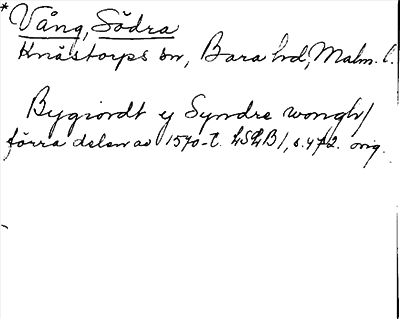 * Vång, Södra
Knästorps sn, Bara hd, Malm. l.
Bygiordt y Syndre wongh/
förra delen av 1570-t. LSLB1, s. 472. orig.